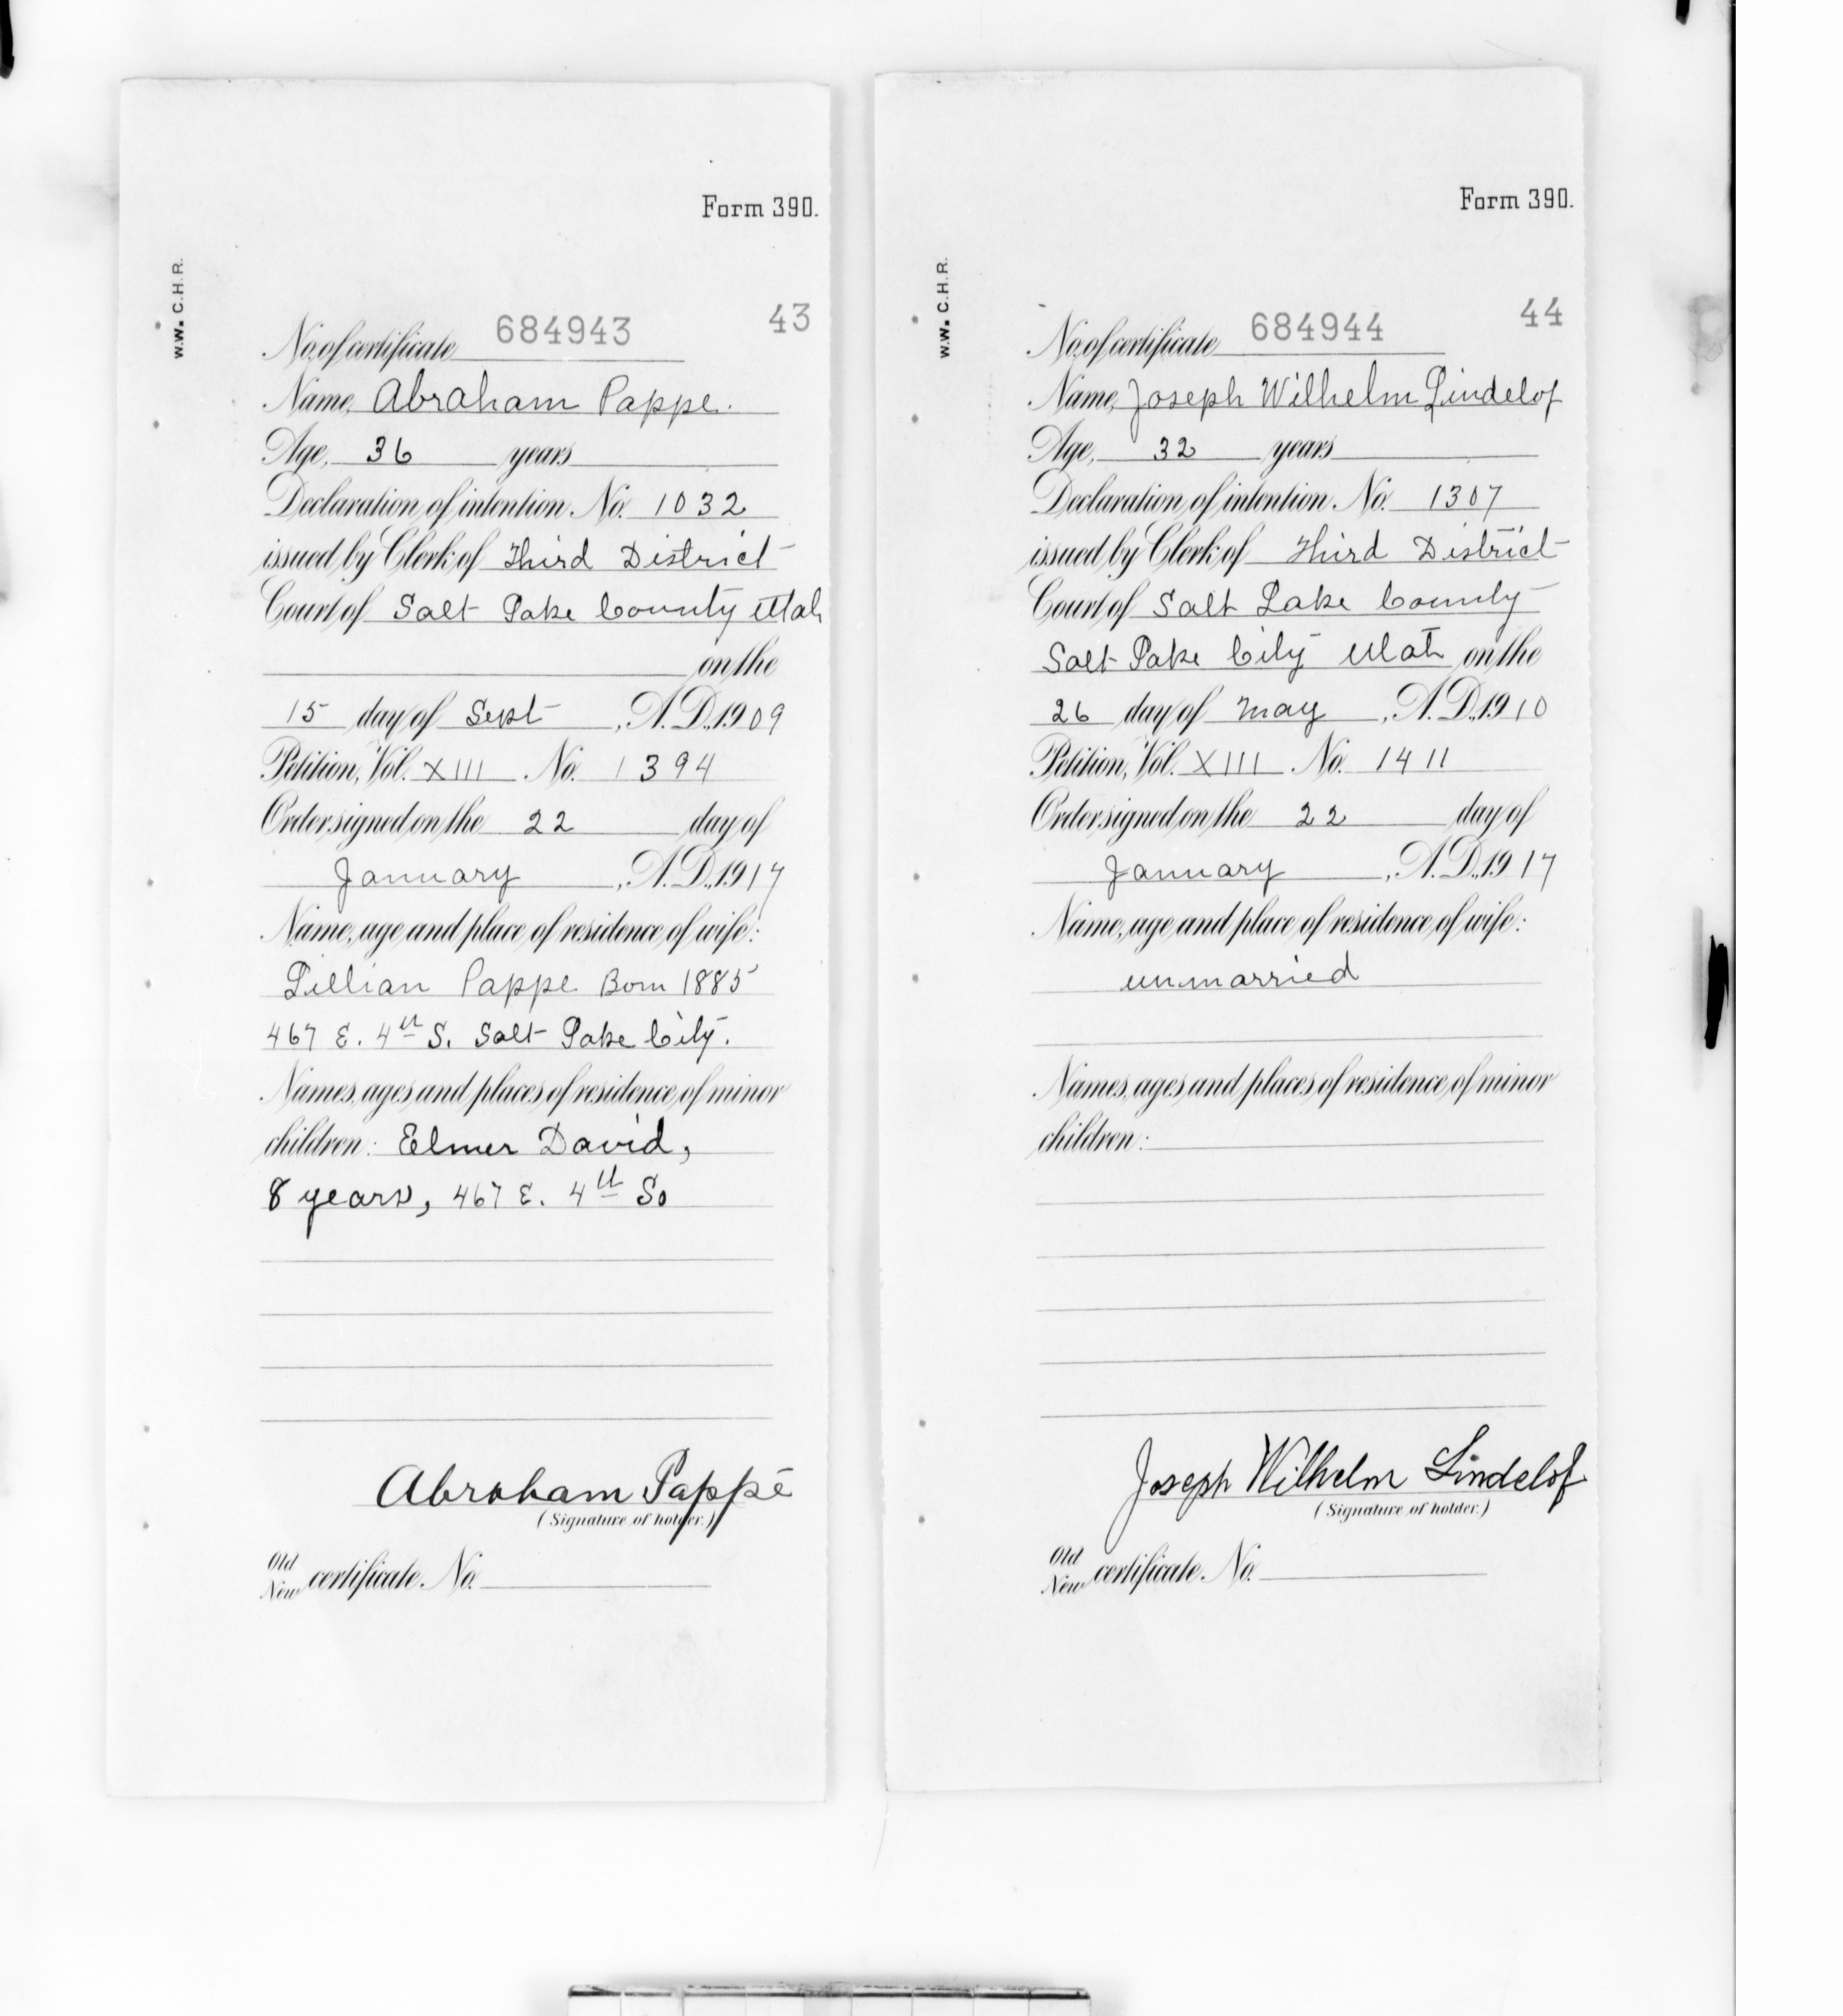 Form 390.
W.W. C.H.R.
43
No. of certificate 684943
Name, Abraham Pappe.
Age, 36 years
Declaration of intention No. 1032
issued by Clerk of Third District
Court of Salt Lake County Utah
on the
15 day of Sept, A.D. 1909
Petition, Vol. XIII No. 1394
Order signed on the 22 day of
January, A.D. 1917
Name, age and place of residence of wife:
Lillian Pappe Born 1885
467 E. 4th S. Salt Lake City.
Names, ages and places of residence of minor
children: Elmer David,
8 years, 467 E. 4th So
Abraham Pappé
(Signature of holder.)
Old
New certificate No.
Form 390.
W.W. C.H.R.
44
No. of certificate 684944
Name, Joseph Wilhelm Lindelof
Age, 32 years
Declaration of intention No. 1307
issued by Clerk of Third District
Court of Salt Lake County
Salt Lake City Utah on the
26 day of May, A.D. 1910
Petition, Vol. XIII No. 1411
Order signed on the 22 day of
January, A.D. 1917
Name, age and place of residence of wife:
unmarried
Names, ages and places of residence of minor
children:
Joseph Wilhelm Lindelof
(Signature of holder.)
Old
New certificate No.